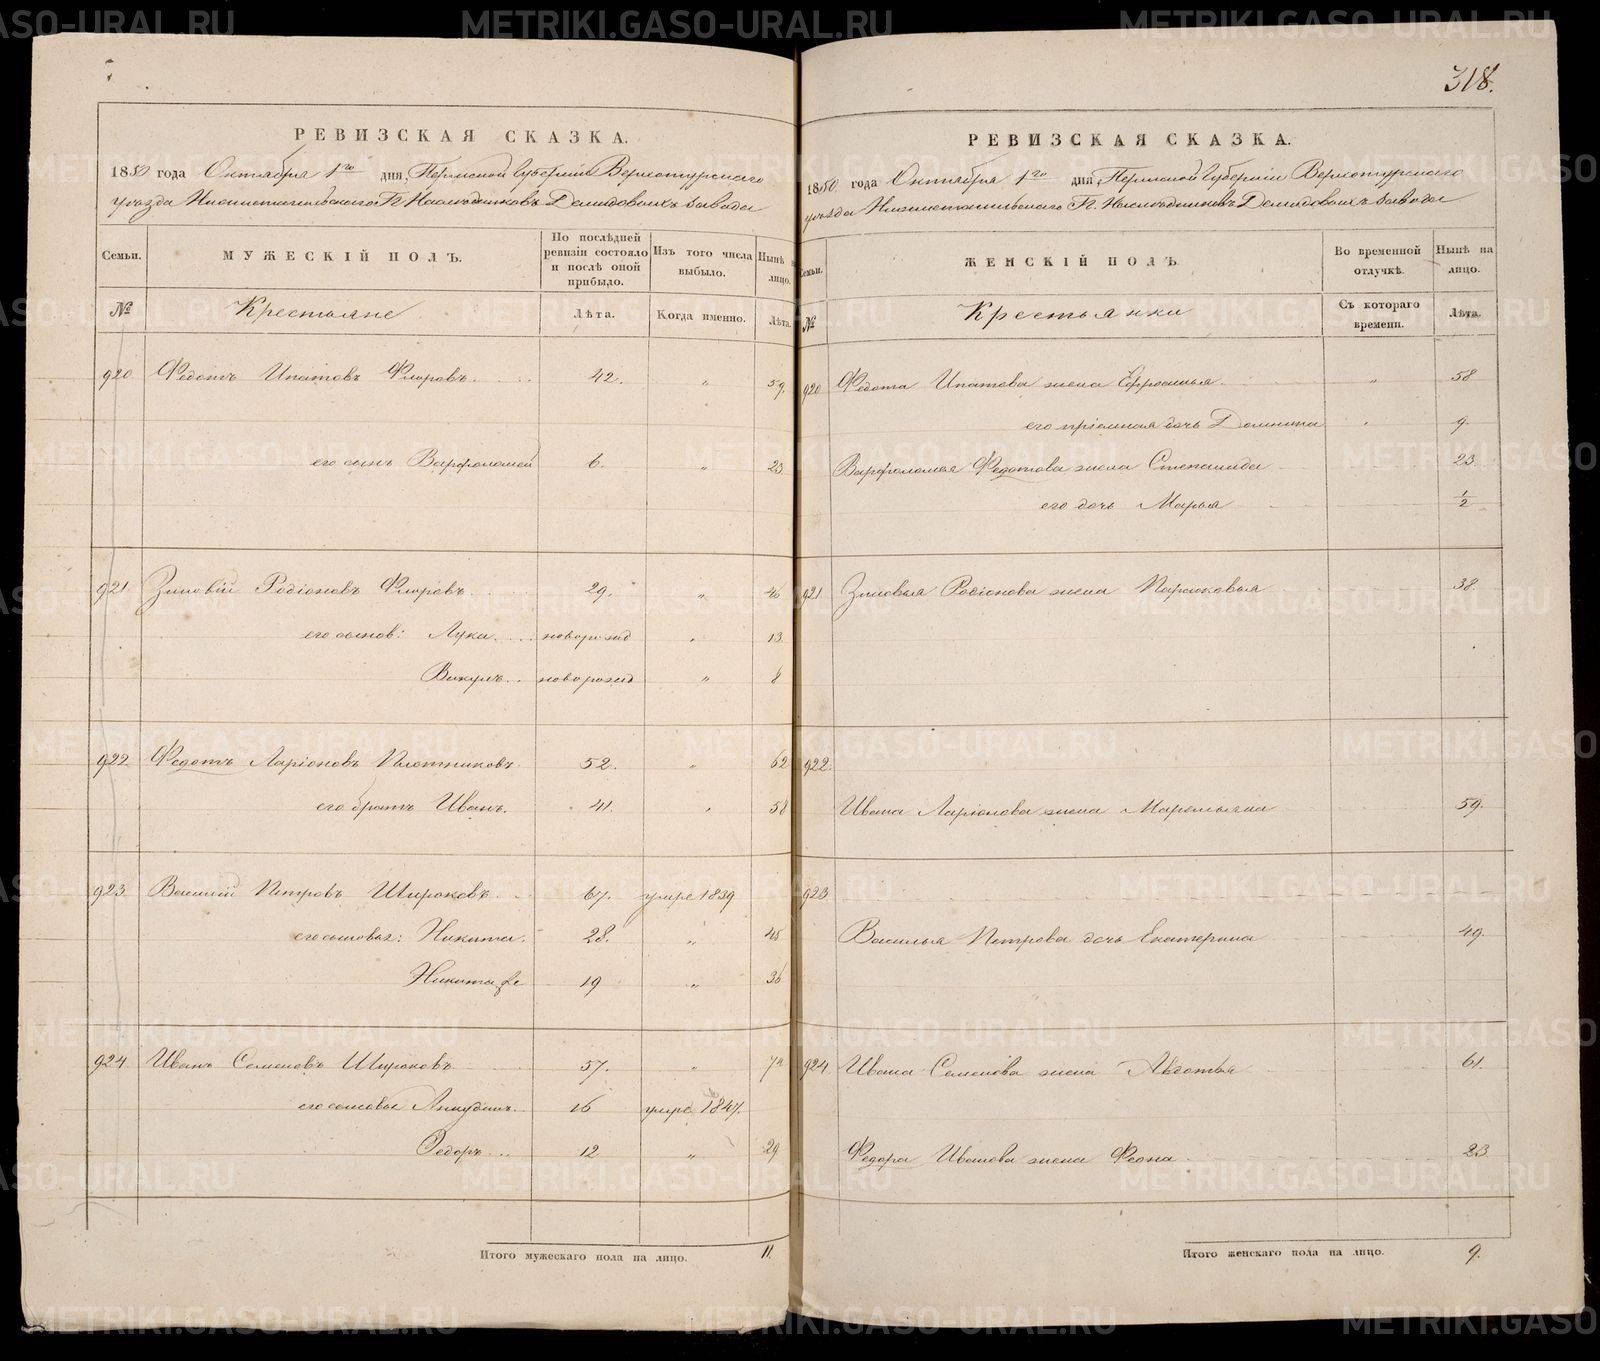 318.
РЕВИЗСКАЯ СКАЗКА.
1850 года Октября 1го дня, Пермской Губерніи Верхотурскаго
уѣзда Нижнетагильскаго Гг. Наслѣдниковъ Демидовыхъ завода
Семьи.
МУЖЕСКІЙ ПОЛЪ.
По послѣдней ревизіи состояло и послѣ оной прибыло.
Изъ того числа выбыло.
Нынѣ на лицо.
№
Крестьяне
Лѣта.
Когда именно.
Лѣта.
920 Федотъ Ипатовъ Флоровъ 42. " 59.
его сынъ Варфоломей 6. " 23
921 Зиновій Родіоновъ Флоровъ 29. " 46
его сынов: Лука новорожд " 13
Викулъ новорожд " 8
922 Федотъ Ларіоновъ Плотниковъ 52. " 62
его братъ Иванъ. 41. " 58
923. Василій Петровъ Широковъ 67. умре 1839
его сыновья: Никита. 28. " 45
Никита же 19 " 36
924. Иванъ Семеновъ Широковъ 57. " 74
его сыновья Анкудинъ 16 умре 1847.
Федоръ 12 " 29
Итого мужескаго пола на лицо. 11.
РЕВИЗСКАЯ СКАЗКА.
1850 года Октября 1го дня, Пермской Губерніи Верхотурскаго
уѣзда Нижнетагильскаго Гг. Наслѣдниковъ Демидовыхъ завода
Семьи.
ЖЕНСКІЙ ПОЛЪ
Во временной отлучкѣ.
Нынѣ на лицо.
№
Крестьянки
Съ котораго времени.
Лѣта.
920 Федота Ипатова жена Ефросинья " 58
его пріемная дочь Домника " 9.
Варфоломея Федотова жена Степанида 23.
его дочь Марья 1/2
921 Зиновья Родіонова жена Парасковья 38.
922.
Ивана Ларіонова жена Маремьяна 59.
923
Василья Петрова дочь Екатерина 49.
924 Ивана Семенова жена Авдотья 61.
Федора Иванова жена Феона 23
Итого женскаго пола на лицо. 9.
METRIKI.GASO-URAL.RU